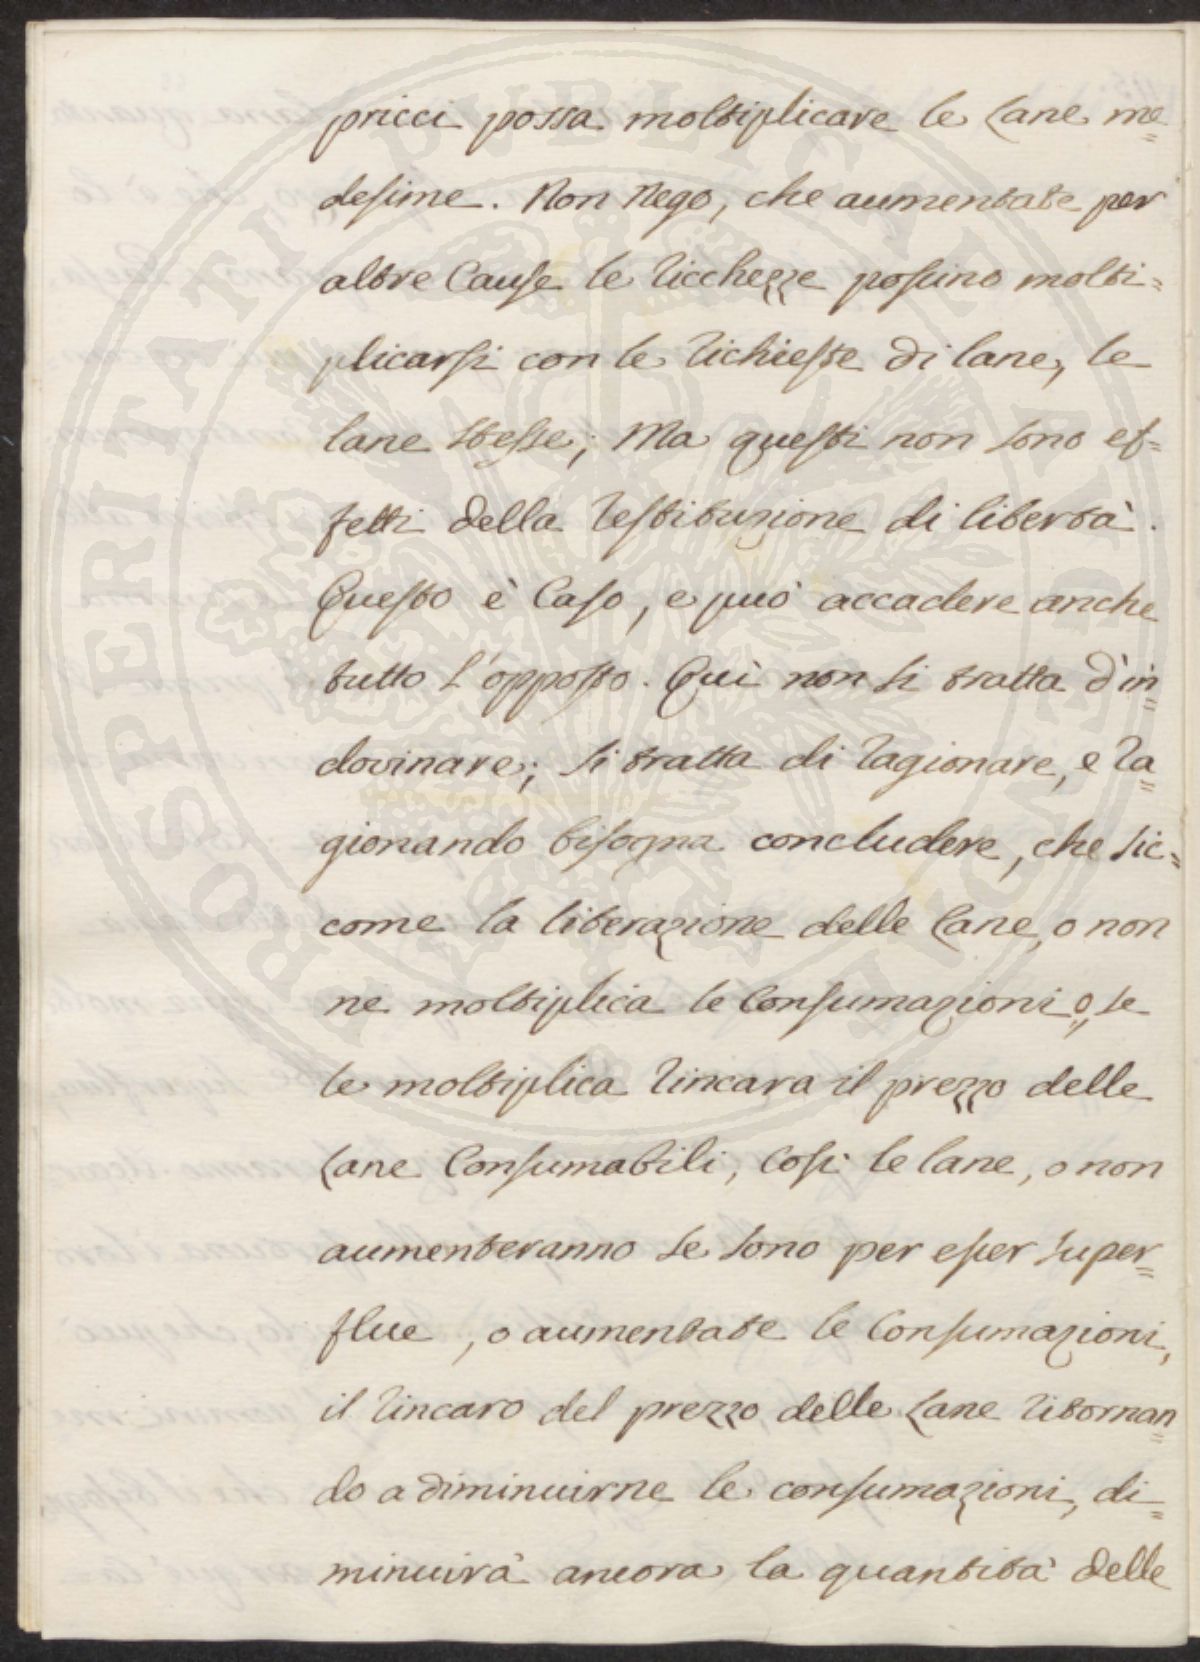 pricci possa moltiplicare le Lane me=
desime. Non Nego, che aumentate per
altre Cause le Ricchezze possino molti=
plicarsi con le Richieste di lane, le
lane stesse; Ma questi non sono ef=
fetti della Restituzione di libertà.
Questo è Caso, e può accadere anche
tutto l'opposto. Qui non si tratta d'in=
dovinare; si tratta di Ragionare, e Ra=
gionando bisogna concludere, che sic=
come la liberazione delle Lane, o non
ne moltiplica le Consumazioni o, se
le moltiplica Rincara il prezzo delle
Lane Consumabili, Così le lane, o non
aumenteranno se sono per esser super=
flue, o aumentate le Consumazioni,
il Rincaro del prezzo delle Lane Ritornan=
do a diminuirne le consumazioni, di=
minuirà ancora la quantità delle
PROSPERITATI PUBLICAE AUGENDAE